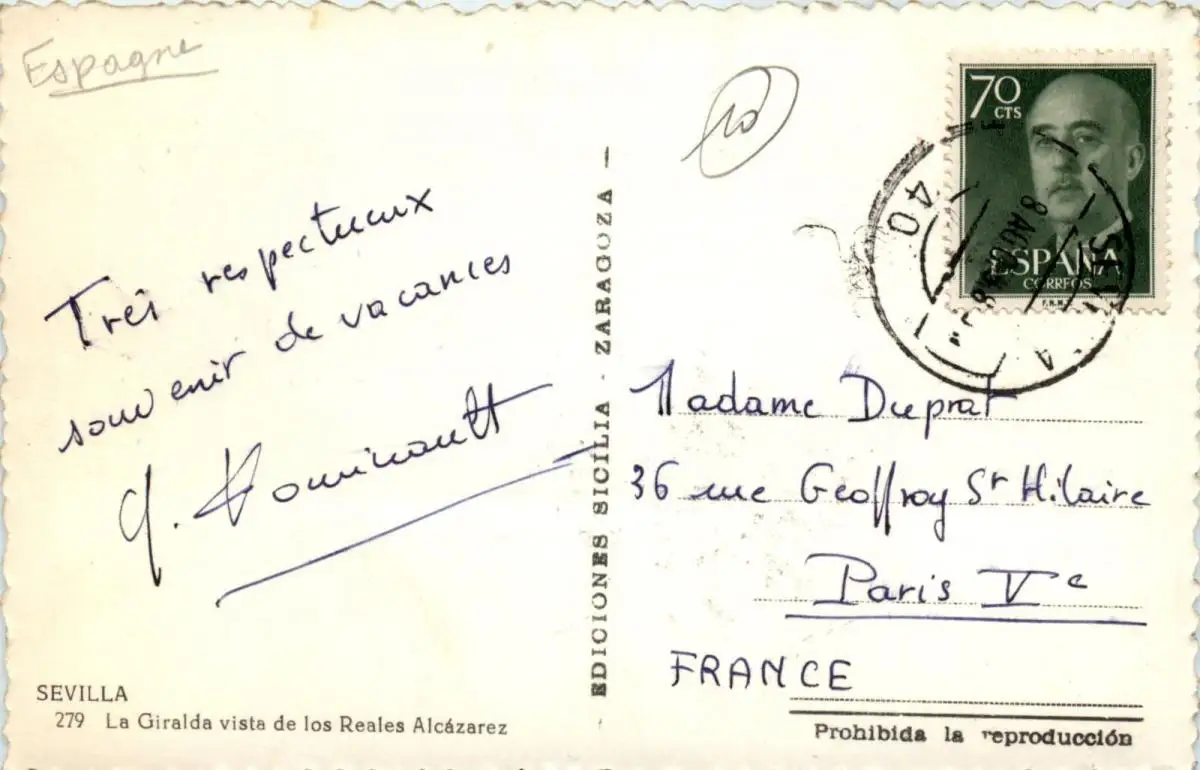 Espagne
10
Très respectueux
souvenir de vacances
EDICIONES SICILIA - ZARAGOZA -
70
CTS
ESPAÑA
CORREOS
F.N.M.
40
Madame Duprat
36 rue Geoffroy St Hilaire
Paris Ve
FRANCE
SEVILLA
279 La Giralda vista de los Reales Alcázarez
Prohibida la reproducción